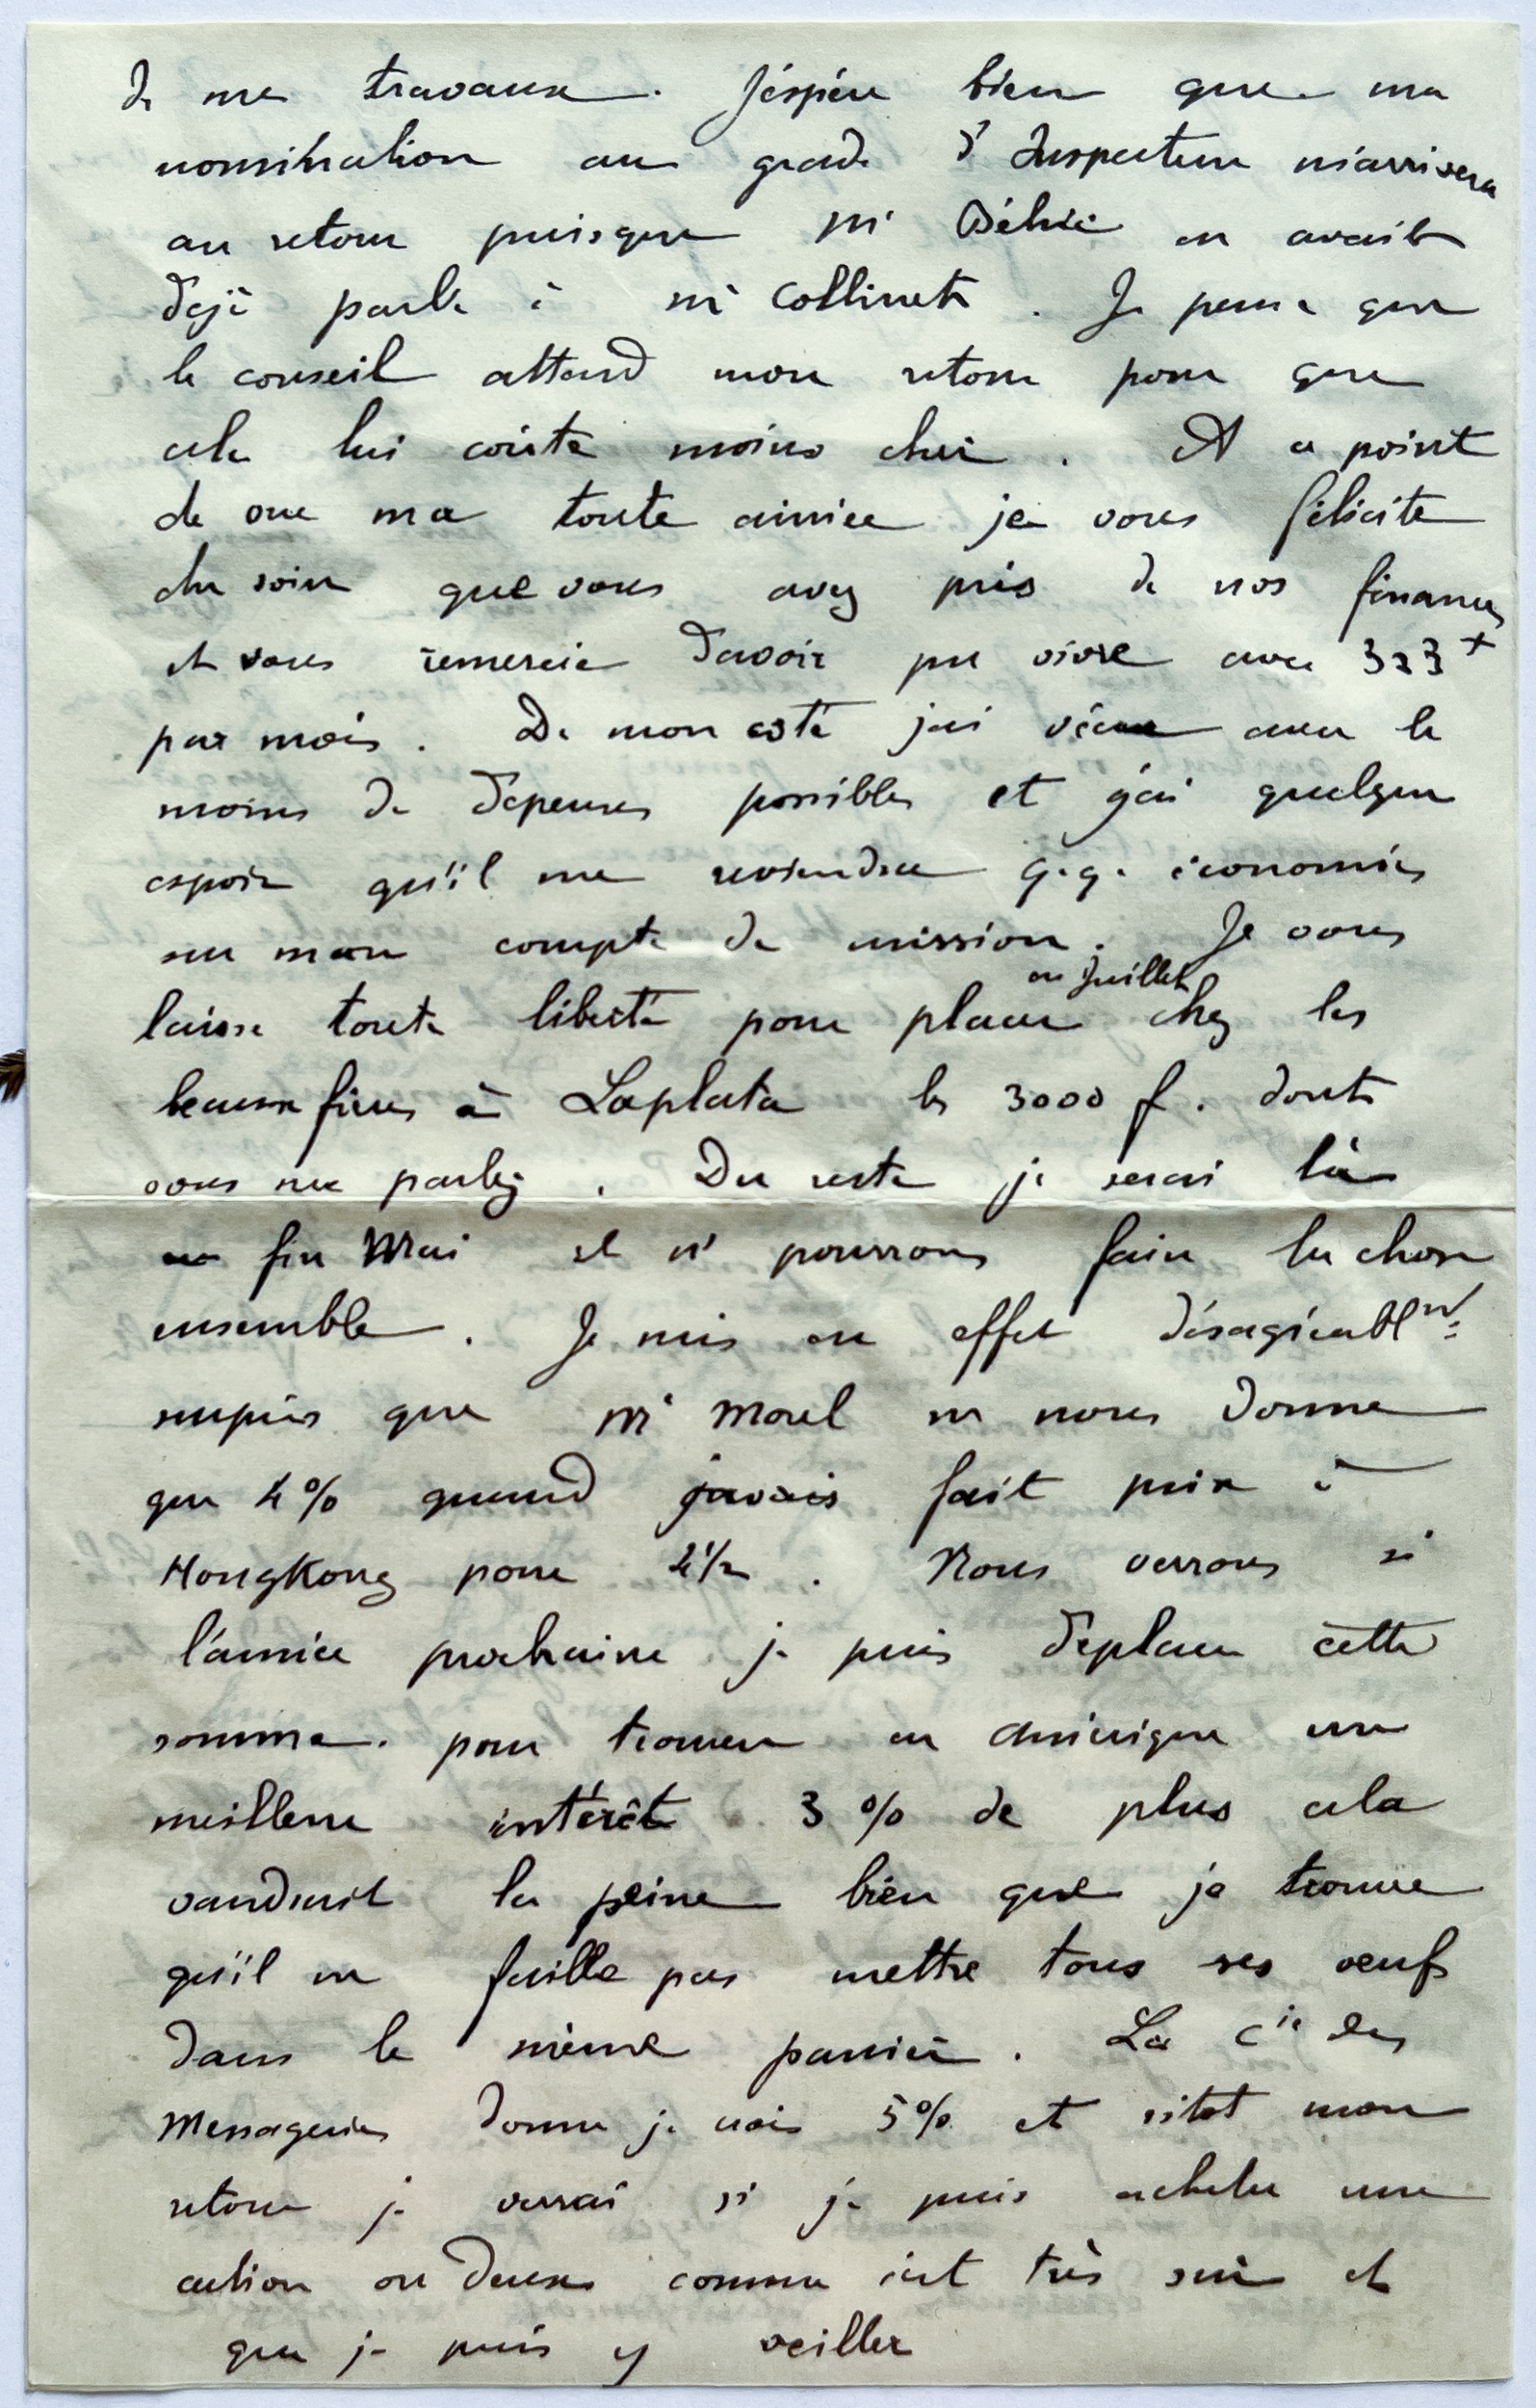 de mes travaux. J'éspère bien que ma
nomination au grade d'Inspecteur m'arrivera
au retour puisque Mr en avait
déjà parlé à Mr Collinet. Je pense que
le conseil attend mon retour pour que
cela lui coûte moins cher. A ce point
de vue ma toute aimée je vous félicite
du soin que vous avez pris de nos finances
et vous remercie d'avoir pu vivre avec 333
par mois. De mon côté j'ai vécu avec le
moins de dépenses possibles et j'ai quelque
espoir qu'il me reviendra q.q. économies
sur mon compte de mission. Je vous
en Juillet
laisse toute liberté pour placer chez les
beaux frères à Laplata les 3000 f. dont
vous me parlez. Du reste je serai là
fin Mai et n/ pourrons faire la chose
ensemble. Je suis en effet désagréablnt
surpris que Mr Morel ne nous donne
que 4% quand j'avais fait prix à
HongKong pour 4 1/2. Nous verrons si
l'année prochaine je puis déplacer cette
somme. pour trouver en Amérique un
meilleur intérêt 3% de plus cela
vaudrait la peine bien que je trouve
qu'il ne faille pas mettre tous ses oeufs
dans le même panier. La Cie des
Messageries donne je crois 5% et sitot mon
retour je verrai si je puis acheter une
action ou deux comme c'est très sûr et
que je puis y veiller